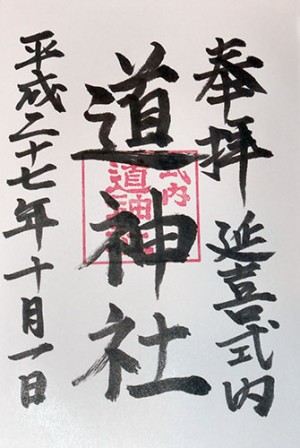 奉拝 延喜式内
道神社
平成二十七年十月一日
式内
道神社